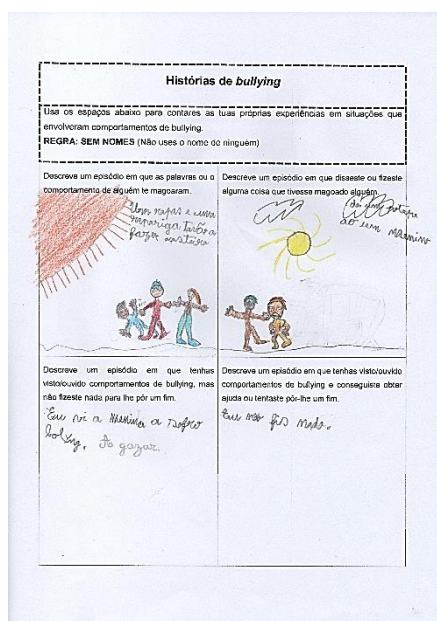 Histórias de bullying
Usa os espaços abaixo para contares as tuas próprias experiências em situações que
envolveram comportamentos de bullying.
REGRA: SEM NOMES (Não uses o nome de ninguém)
Descreve um episódio em que as palavras ou o
comportamento de alguém te magoaram.
Um rapas e uma
rapariga
fazer
Descreve um episódio em que disseste ou fizeste
alguma coisa que tivesse magoado alguém.
dei um
ao um menino
Descreve um episódio em que tenhas
visto/ouvido comportamentos de bullying, mas
não fizeste nada para lhe pôr um fim.
Eu vi a menina a
Descreve um episódio em que tenhas visto/ouvido
comportamentos de bullying e conseguiste obter
ajuda ou tentaste pôr-lhe um fim.
Eu não fis nada.
A gozar.